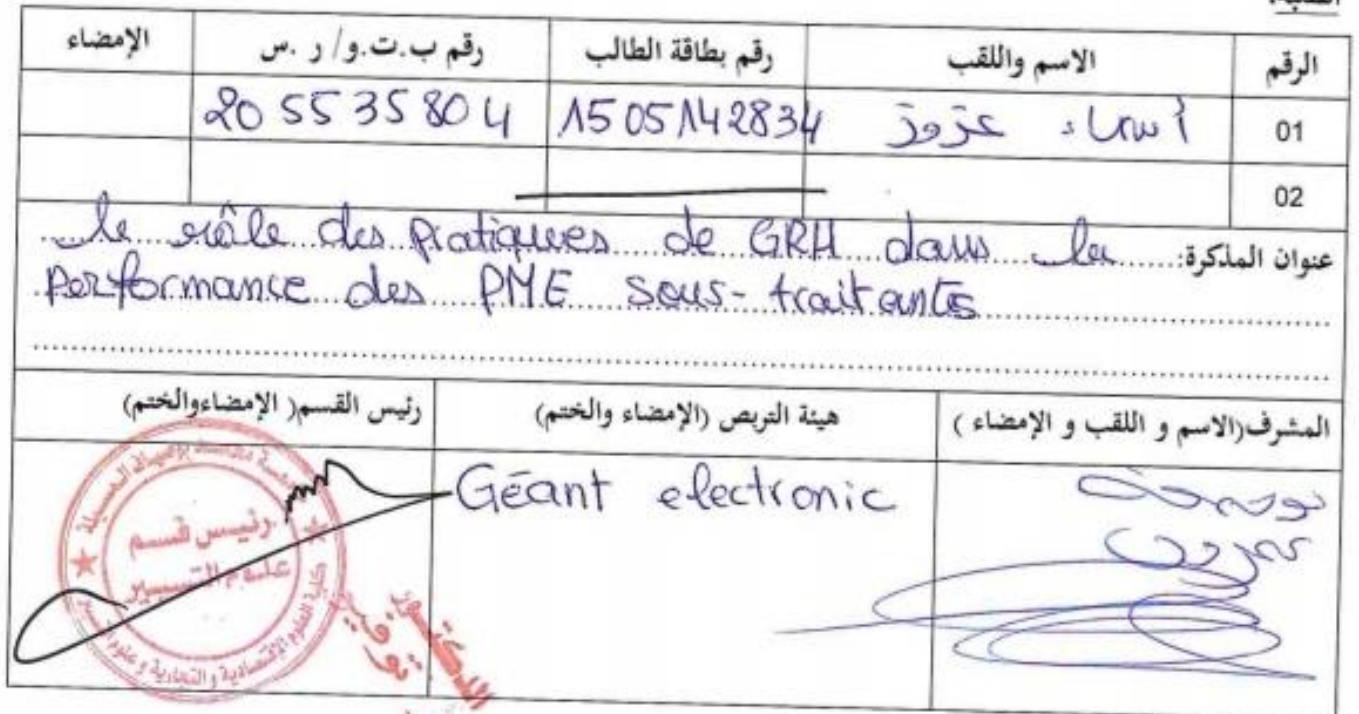 الطلبة:
الرقم الاسم واللقب رقم بطاقة الطالب رقم ب.ت.و/ ر .س الإمضاء
01 أسماء عزوز 1505142834 205535804
02
عنوان المذكرة: le rôle des pratiques de GRH dans la
performance des PME sous-traitants
المشرف(الاسم و اللقب و الإمضاء ) هيئة التربص (الإمضاء والختم) رئيس القسم( الإمضاءوالختم)
Géant electronic
رئيس قسم
علوم التسيير
كلية العلوم الإقتصادية و التجارية و علوم التسيير
الدكتور